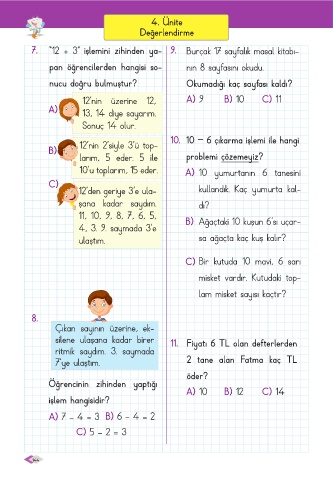 4. Ünite
Değerlendirme
7. "12 + 3" işlemini zihinden ya-
pan öğrencilerden hangisi so-
nucu doğru bulmuştur?
A) 12'nin üzerine 12,
13, 14 diye sayarım.
Sonuç 14 olur.
B) 12'nin 2'siyle 3'ü top-
larım, 5 eder. 5 ile
10'u toplarım, 15 eder.
C) 12'den geriye 3'e ula-
şana kadar saydım.
11, 10, 9, 8, 7, 6, 5,
4, 3. 9. saymada 3'e
ulaştım.
8.
Çıkan sayının üzerine, ek-
silene ulaşana kadar birer
ritmik saydım. 3. saymada
7'ye ulaştım.
Öğrencinin zihinden yaptığı
işlem hangisidir?
A) 7 - 4 = 3 B) 6 - 4 = 2
C) 5 - 2 = 3
9. Burçak 17 sayfalık masal kitabı-
nın 8 sayfasını okudu.
Okumadığı kaç sayfası kaldı?
A) 9 B) 10 C) 11
10. 10 - 6 çıkarma işlemi ile hangi
problemi çözemeyiz?
A) 10 yumurtanın 6 tanesini
kullandık. Kaç yumurta kal-
dı?
B) Ağaçtaki 10 kuşun 6'sı uçar-
sa ağaçta kaç kuş kalır?
C) Bir kutuda 10 mavi, 6 sarı
misket vardır. Kutudaki top-
lam misket sayısı kaçtır?
11. Fiyatı 6 TL olan defterlerden
2 tane alan Fatma kaç TL
öder?
A) 10 B) 12 C) 14